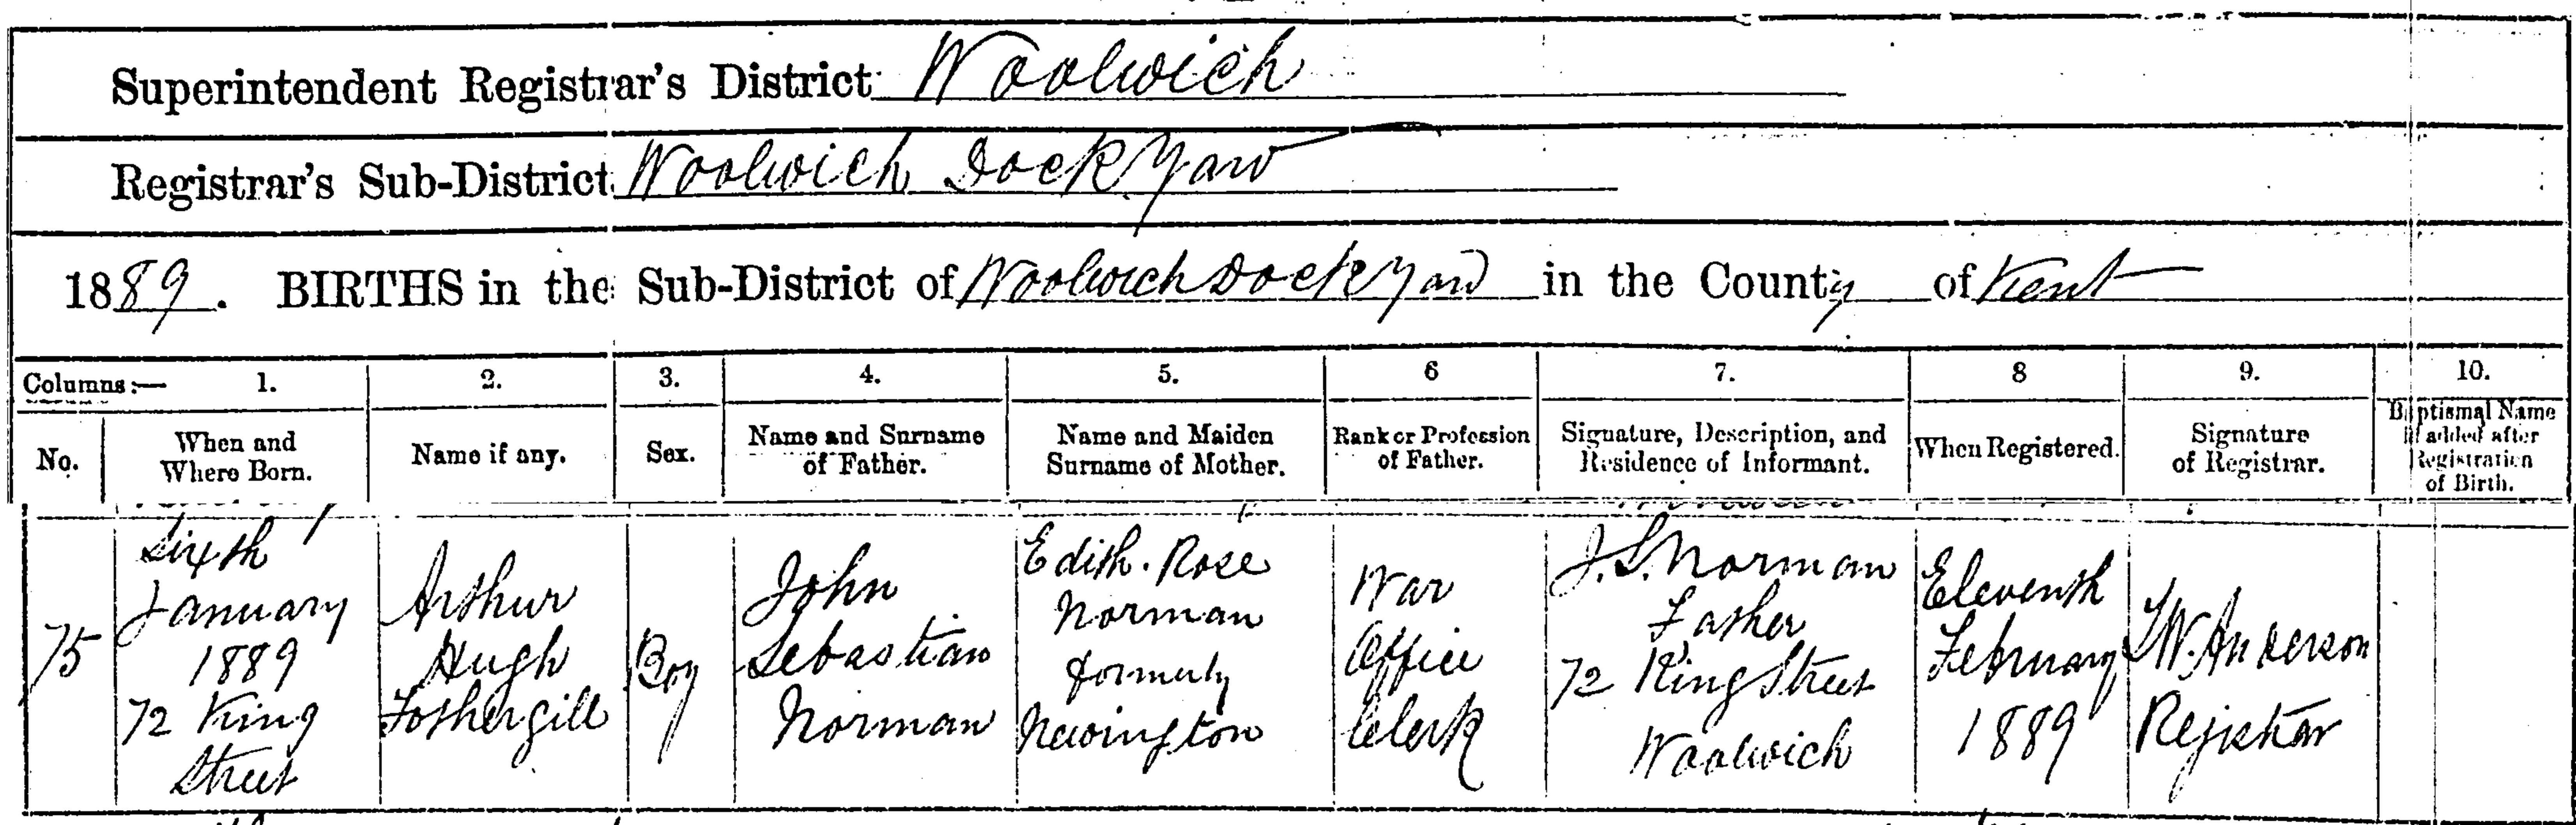 Superintendent Registrar's District Woolwich
Registrar's Sub-District Woolwich Dock Yard
1889. BIRTHS in the Sub-District of Woolwich Dock Yard in the County of Kent
Columns:— 1. 2. 3. 4. 5. 6 7. 8 9. 10.
No.
When and
Where Born.
Name if any.
Sex.
Name and Surname
of Father.
Name and Maiden
Surname of Mother.
Rank or Profession
of Father.
Signature, Description, and
Residence of Informant.
When Registered.
Signature
of Registrar.
Baptismal Name
if added after
Registration
of Birth.
75
Sixth
January
1889
72 King
Street
Arthur
Hugh
Fothergill
Boy
John
Sebastian
Norman
Edith Rose
Norman
formerly
Newington
War
Office
Clerk
J. S. Norman
Father
72 King Street
Woolwich
Eleventh
February
1889
W. Anderson
Registrar